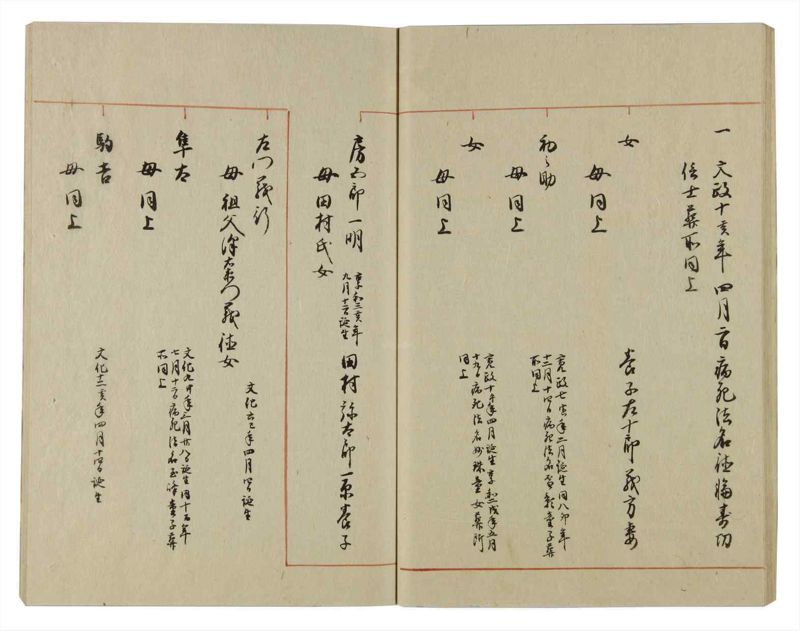 一 文政十亥年四月二日病死法名法勝壽功
信士葬所同上
女 養子左十郎義方妻
母同上
初之助
母同上
寛政七寅年二月誕生同八卯年
十二月十四日病死法名智影童子葬
所同上
女
母同上
寛政十午年四月誕生享和二戌年五月
十九日病死法名妙珠童女葬所
同上
房五郎一明
享和三亥年
九月十二日誕生
田村弥太郎一原養子
母田村氏女
左門義行
母祖父沢右衛門義陳女
文化六巳年四月四日誕生
隼太
母同上
文化九申年三月廿八日誕生同十五年
七月十二日病死法名玉峰童子葬
所同上
駒吉
母同上
文化十二亥年四月十四日誕生